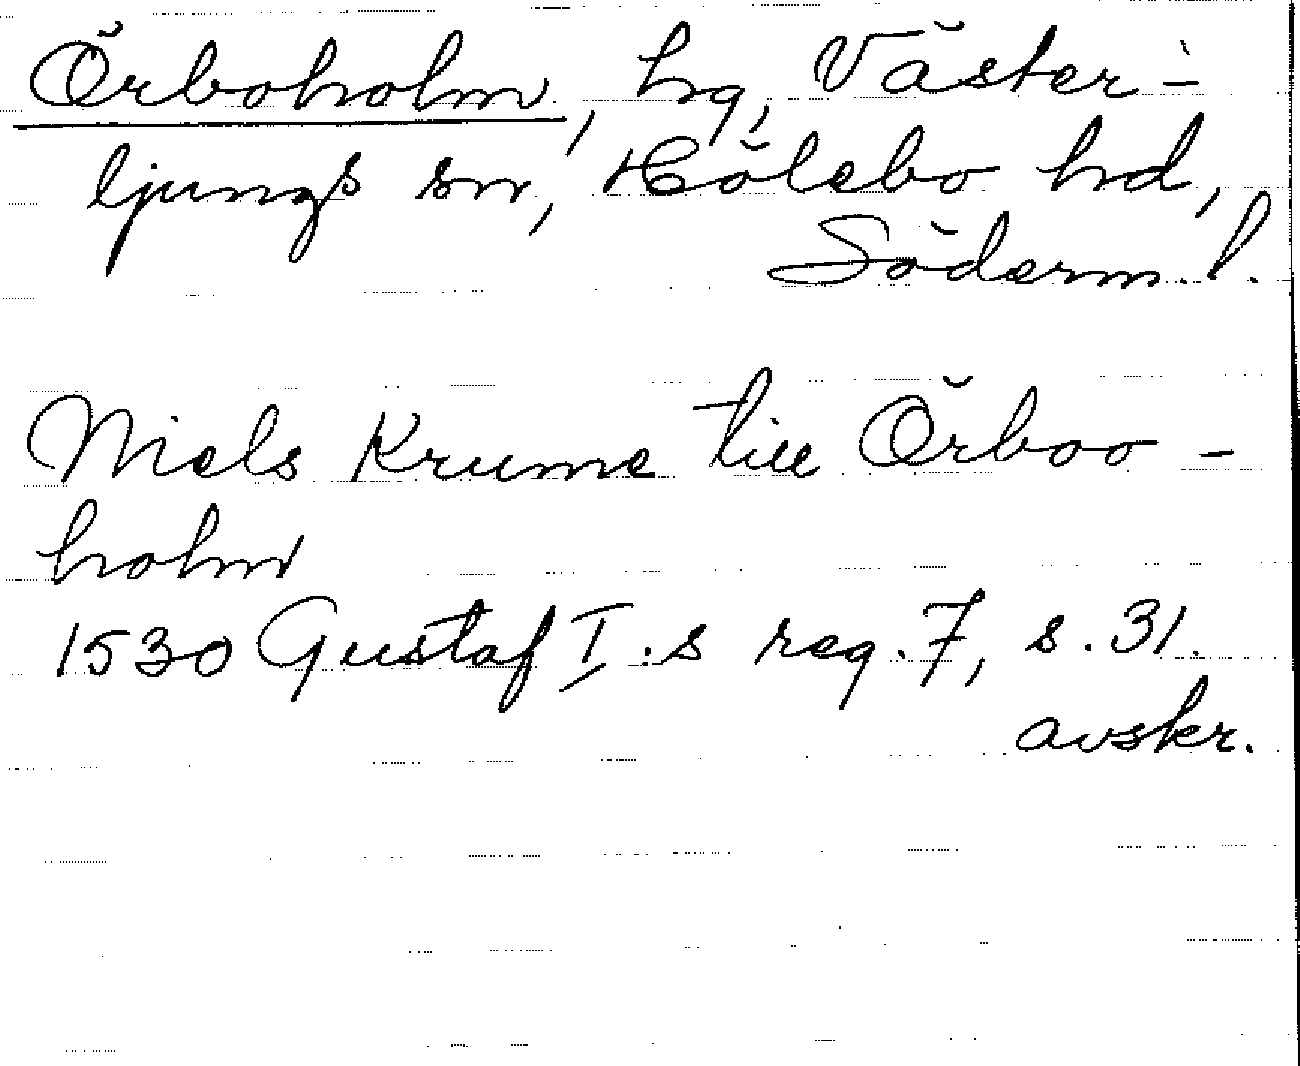 Örboholm, hg, Väster-
ljungs sn, Hölebo hd,
Söderm. l.
Niels Krume till Örboo-
holm
1530 Gustaf I.s reg. 7, s. 31.
avskr.